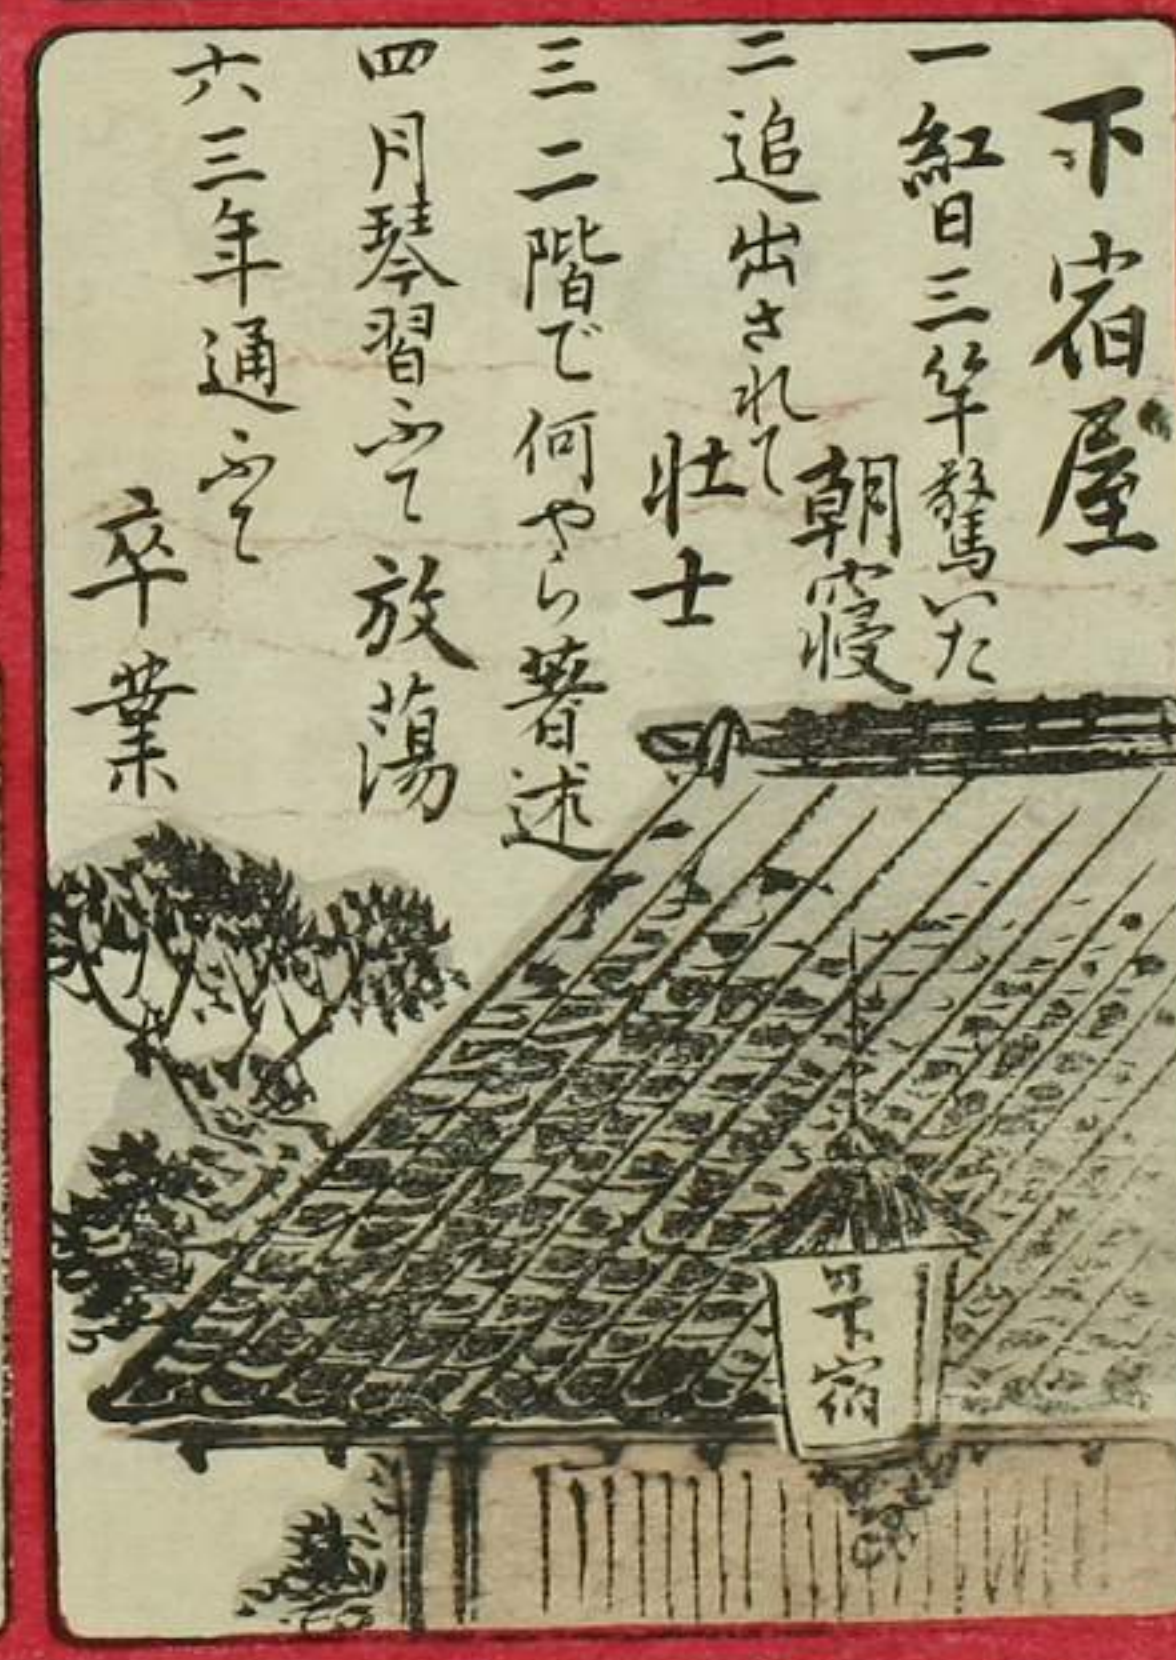 下宿屋
一 紅日三竿驚いた
朝寝
二 追出されて
壮士
三 二階で何やら著述
四 月琴習ふて放蕩
六 三年通ふて
卒業
下宿